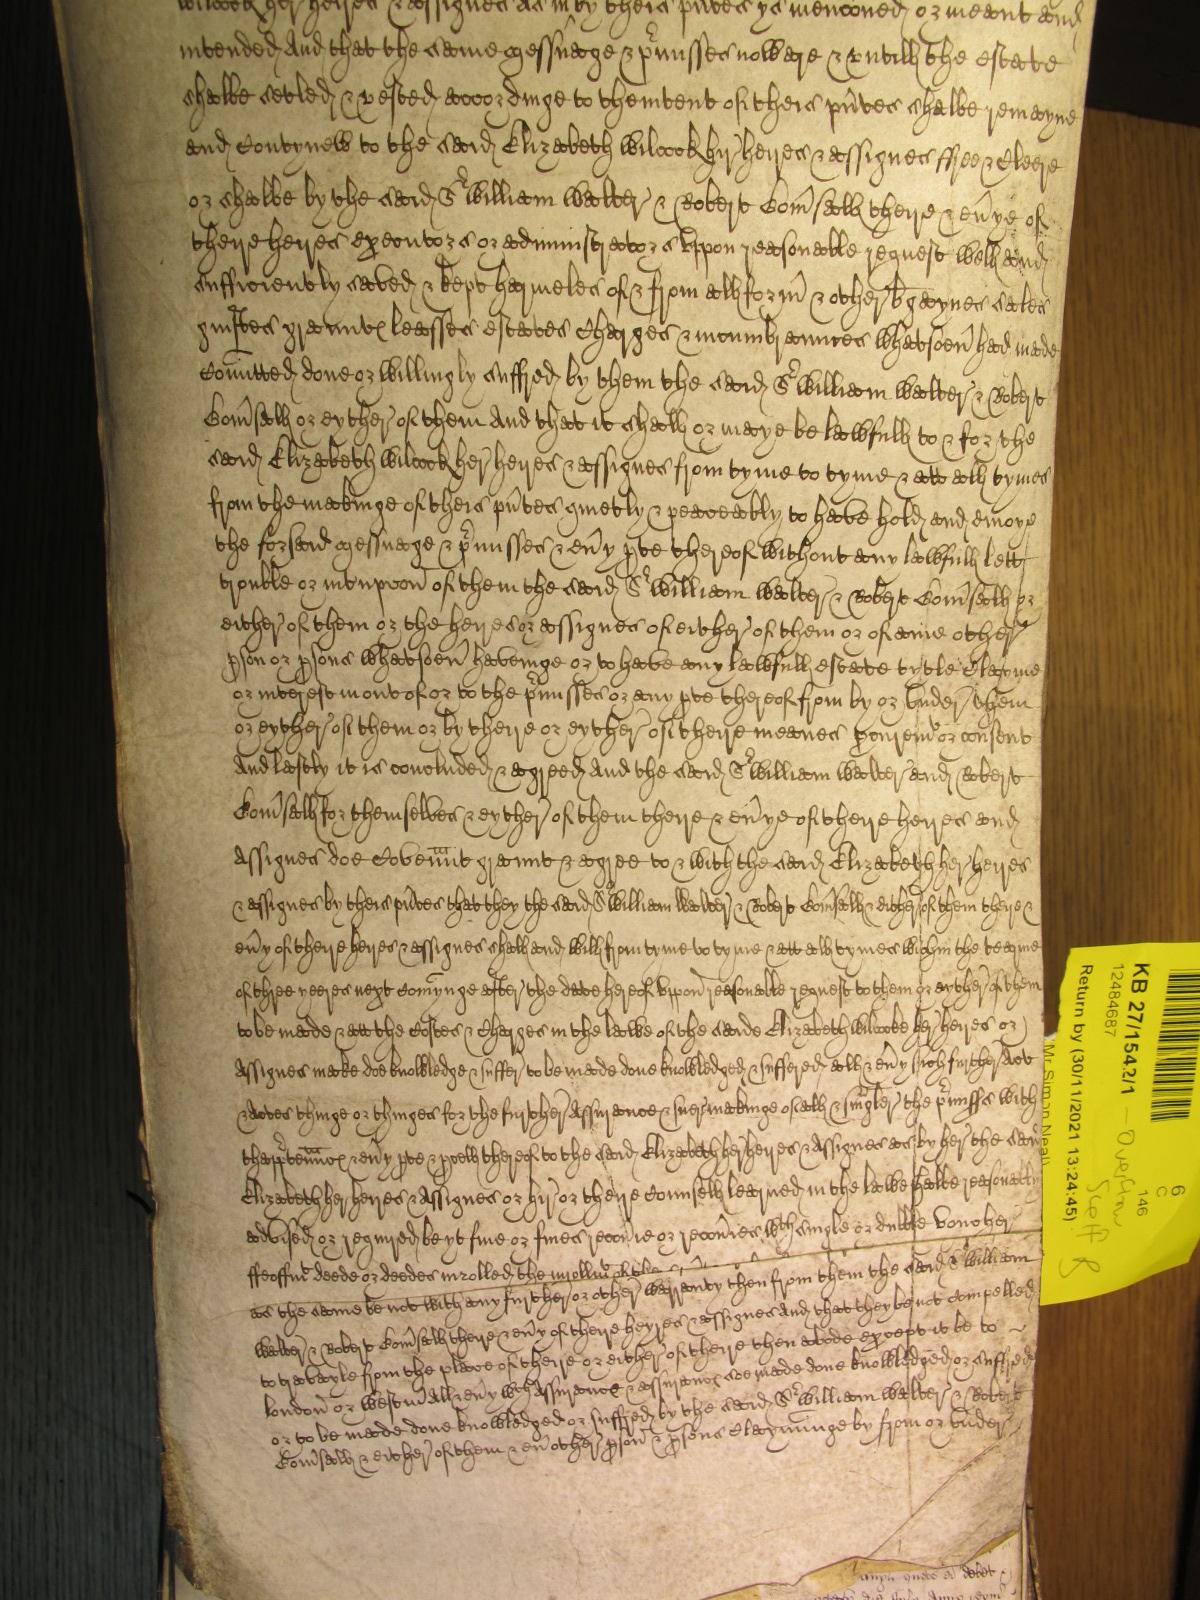 Wilcock her heires & assignes as in by theis pntes ys mencioned or meant and
intended And that the same messuage & pmisses nowe are & untill the estate
shalbe setled & vested accordinge to thentent of theis pntes shalbe remayne
and contynew to the said Elizabeth Wilcock hir heires & assignes ffree & cleere
or shalbe by the said Sr William Walter & Robert Bomsall theire & evye of
theire heires executors or administrators uppon reasonable request well and
sufficiently saved & kept harmeles of & from all form & other bgaynes sales
guiftes graunts leasses estates charges & incumbraunces whatsoev had made
comitted done or willingly suffred by them the said Sr William Walter & Robert
Bomsall or eyther of them And that it shall or maye be lawfull to & for the
said Elizabeth Wilcock her heires & assignes from tyme to tyme & att all tymes
from the makinge of theis pntes quietly & peaceably to have hold and enioye
the forsaid messuage & pmisses & evy pte thereof without any lawfull lett
trouble or interupcon of them the said Sr William Walter & Robert Bomsall or
either of them or the heires or assignes of either of them or of anie other
pson or psons whatsoev haveinge or to have any lawfull estate tytle clayme
or interest in out of or to the pmisses or any pte thereof from by or under them
or eyther of them or by theire or eyther of theire meanes procurem or consent
And lastly it is concluded & agreed And the said Sr William Walter and Robert
Bomsall for themselves & eyther of them theire & evye of theire heires and
Assignes doe covennt graunt & agree to & with the said Elizabeth her heires
& assignes by theis pntes that they the said Sr William Walter & Robert Bomsall & either of them theire &
evy of theire heires & assignes shall and will from tyme to tyme & att all tymes within the tearme
of three yeeres next comynge after the date hereof uppon reasonable request to them or eyther of them
to be made & att the costes & charges in the lawe of the saide Elizabeth Wilcocke her heires or
Assignes make doe knowledge & suffer to be made done knowledged & suffered all & evy such further Act
& Actes thinge or thinges for the further Assurance & suer makinge of all & singler the pmisss with
thapptenncs & evy pte & pcell thereof to the said Elizabeth her heires & Assignes as by her the said
Elizabeth her heires & Assignes or hir or theire Counsell learned in the lawe shalbe reasonably
advised or required be yt fine or fines recovie or recovies wth single or duble voucher
ffeoffm deede or deedes inrolled the inrollm of the
as the same be not with any further or other warranty then from them the said Sr William
Walter & Robert Bomsall theire & evy of theire heyres & assignes And that they be not compelled
to travayle from the place of theire or either of theire then abode except it be to
London or Westm All & evy wch Assurance & assurancs soe made done knowledged or suffred
or to be made done knowledged or suffred by the said Sr William Walter & Robert
Bomsall & either of them & ev other pson & psons claymynge by from or under
KB 27/1542/1
12484687
Return by (30/11/2021 13:24:45)
Mr Simon Neal
146
6
C